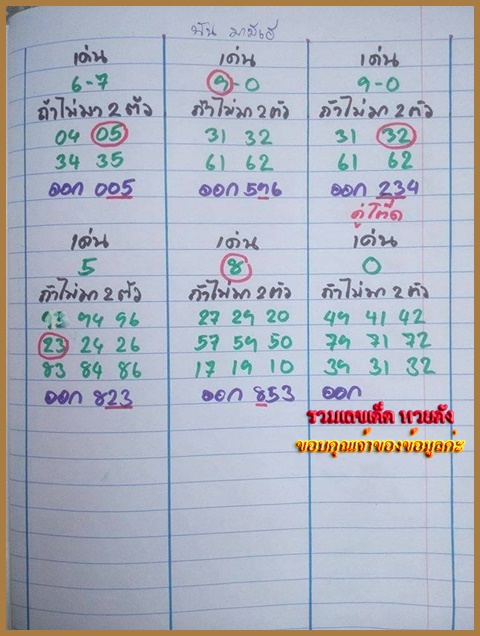 เด่น
6-7
ถ้าไม่มา 2 ตัว
04 05
34 35
ออก 005
เด่น
9-0
ถ้าไม่มา 2 ตัว
31 32
61 62
ออก 596
เด่น
9-0
ถ้าไม่มา 2 ตัว
31 32
61 62
ออก 234
คู่โต๊ด
เด่น
5
ถ้าไม่มา 2 ตัว
93 94 96
23 24 26
83 84 86
ออก 823
เด่น
8
ถ้าไม่มา 2 ตัว
27 29 20
57 59 50
17 19 10
ออก 853
เด่น
0
ถ้าไม่มา 2 ตัว
49 41 42
79 71 72
39 31 32
ออก
รวมเลขเด็ด หวยดัง
ขอบคุณเจ้าของข้อมูลค่ะ